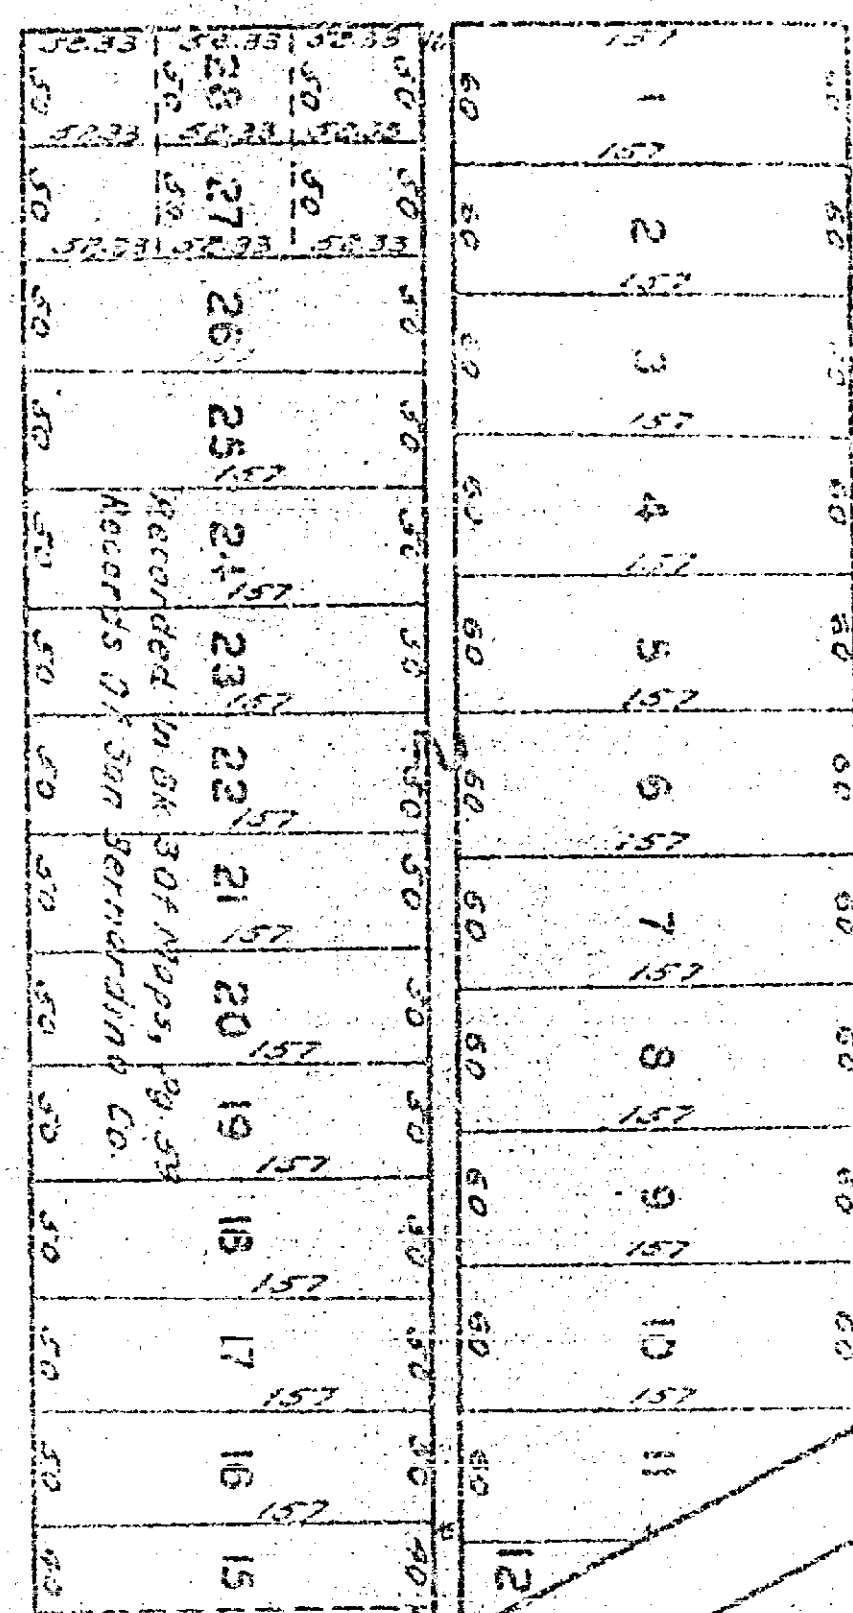 52.33 52.33 52.33
50 50 28 50 50
52.33 52.33 52.33
50 50 27 50 50
52.33 52.33 52.33
50 26 50
50 25 50
157
50 24 50
157
50 23 50
157
50 22 50
157
50 21 50
157
50 20 50
157
50 19 50
157
50 18 50
157
50 17 50
157
50 16 50
157
40 15 40
Recorded In Bk 3 Of Maps, Pg. 59
Records Of San Bernardino Co.
157
60 1 60
157
60 2 60
157
60 3
157
60 4 60
157
60 5 60
157
60 6 60
157
60 7 60
157
60 8 60
157
60 9 60
157
60 10 60
157
60 11
12